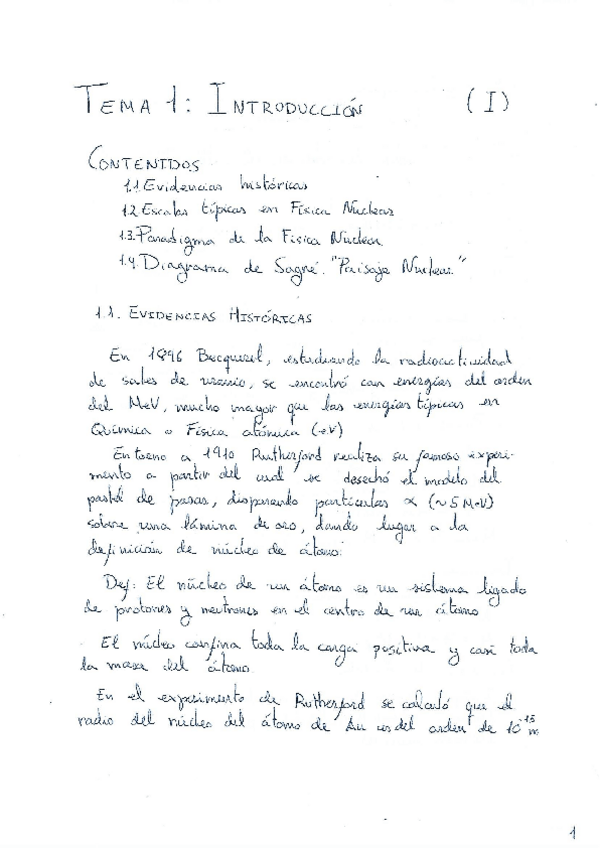 TEMA 1: INTRODUCCIÓN (I)
CONTENIDOS
1.1 Evidencias históricas
1.2 Escalas típicas en Física Nuclear
1.3. Paradigma de la Física Nuclear
1.4. Diagrama de Sagré. "Paisaje Nuclear"
1.1. EVIDENCIAS HISTÓRICAS
En 1896 Becquerel, estudiando la radioactividad
de sales de uranio, se encontró con energías del orden
del MeV, mucho mayor que las energías típicas en
Química o Física atómica (eV)
En torno a 1910 Rutherford realiza su famoso experi-
mento a partir del cual se desechó el modelo del
pastel de pasas, disparando partículas α (~5 MeV)
sobre una lámina de oro, dando lugar a la
definición de núcleo de átomo:
Def: El núcleo de un átomo es un sistema ligado
de protones y neutrones en el centro de un átomo
El núcleo confina toda la carga positiva y casi toda
la masa del átomo
En el experimento de Rutherford se calculó que el
radio del núcleo del átomo de Au es del orden de 10⁻¹⁵ m
1